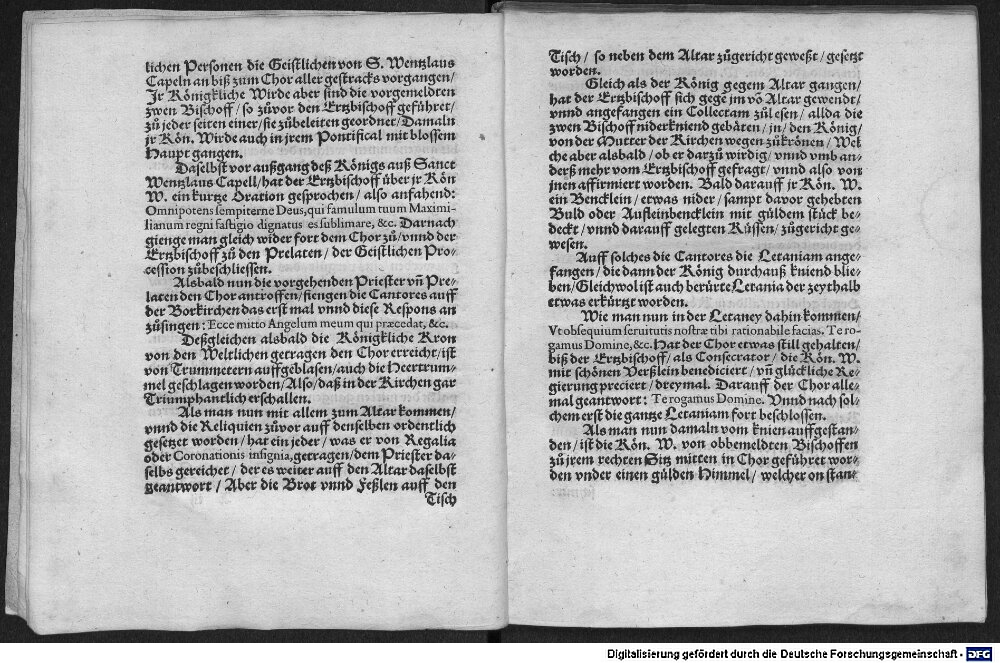 lichen Personen die Geistlichen von S. Wentzlaus
Capeln an biß zum Chor aller gestracks vorgangen/
Jr Königkliche Wirde aber sind die vorgemeldten
zwen Bischoff / so zůvor den Ertzbischoff geführet/
zů jeder seiten einer/ sie zůbeleiten geordnet/ Damaln
jr Kön. Wirde auch in jrem Pontifical mit blossem
Haupt gangen.
Daselbst vor außgang deß Königs auß Sanct
Wentzlaus Capell/ hat der Ertzbischoff über jr Kön
W. ein kurtze Oration gesprochen/ also anfahend:
Omnipotens sempiterne Deus, qui famulum tuum Maximi-
lianum regni fastigio dignatus es sublimare, &c. Darnach
gienge man gleich wider fort dem Chor zů/ vnnd der
Ertzbischoff zů den Prelaten/ der Geistlichen Pro-
cession zůbeschliessen.
Alsbald nun die vorgehenden Priester vñ Pre-
laten den Chor antroffen/ fiengen die Cantores auff
der Borkirchen das erst mal vnnd diese Respons an
zůsingen: Ecce mitto Angelum meum qui præcedat, &c.
Deßgleichen alsbald die Königkliche Kron
von den Weltlichen getragen den Chor erreicht/ ist
von Trummetern auffgeblasen/ auch die Heertrum-
mel geschlagen worden/ Also/ daß in der Kirchen gar
Triumphantlich erschallen.
Als man nun mit allem zum Altar kommen/
vnnd die Reliquien zůvor auff denselben ordentlich
gesetzet worden/ hat ein jeder/ was er von Regalia
oder Coronationis insignia, getragen/ dem Priester da-
selbs gereichet/ der es weiter auff den Altar daselbst
geantwort/ Aber die Brot vnnd Feßlen auff den
Tisch
Tisch/ so neben dem Altar zůgericht geweßt/ gesetzt
worden.
Gleich als der König gegem Altar gangen/
hat der Ertzbischoff sich gege jm vö Altar gewendt/
vnnd angefangen ein Collectam zůlesen/ allda die
zwen Bischoff niderkniend gebäten/ jn/ den König/
von der Mutter der Kirchen wegen zůkrönen/ Wel
che aber alsbald/ ob er darzů wirdig/ vnnd vmb an-
derß mehr vom Ertzbischoff gefragt/ vnnd also von
jnen affirmiert worden. Bald darauff jr Kön. W.
ein Bencklein/ etwas nider/ sampt davor gehebten
Buld oder Aufleinbencklein mit güldem stück be-
deckt/ vnnd darauff gelegten Küssen/ zůgericht ge-
wesen.
Auff solches die Cantores die Letaniam ange-
fangen/ die dann der König durchauß kniend blie-
ben/ Gleichwol ist auch berürte Letania der zeyt halb
etwas erkürtzt worden.
Wie man nun in der Letaney dahin kommen/
Vt obsequium seruitutis nostræ tibi rationabile facias. Te ro-
gamus Domine, &c. Hat der Chor etwas still gehalten/
biß der Ertzbischoff/ als Consecrator/ die Kön. W.
mit schönen Verßlein benediciert/ vñ glückliche Re-
gierung preciert/ dreymal. Darauff der Chor alle-
mal geantwort: Te rogamus Domine. Vnnd nach sol-
chem erst die gantze Letaniam fort beschlossen.
Als man nun damaln vom knien auffgestan-
den/ ist die Kön. W. von obbemeldten Bischoffen
zů jrem rechten Sitz mitten in Chor geführet wor-
den vnder einen gülden Himmel/ welcher on stan-
Digitalisierung gefördert durch die Deutsche Forschungsgemeinschaft - DFG